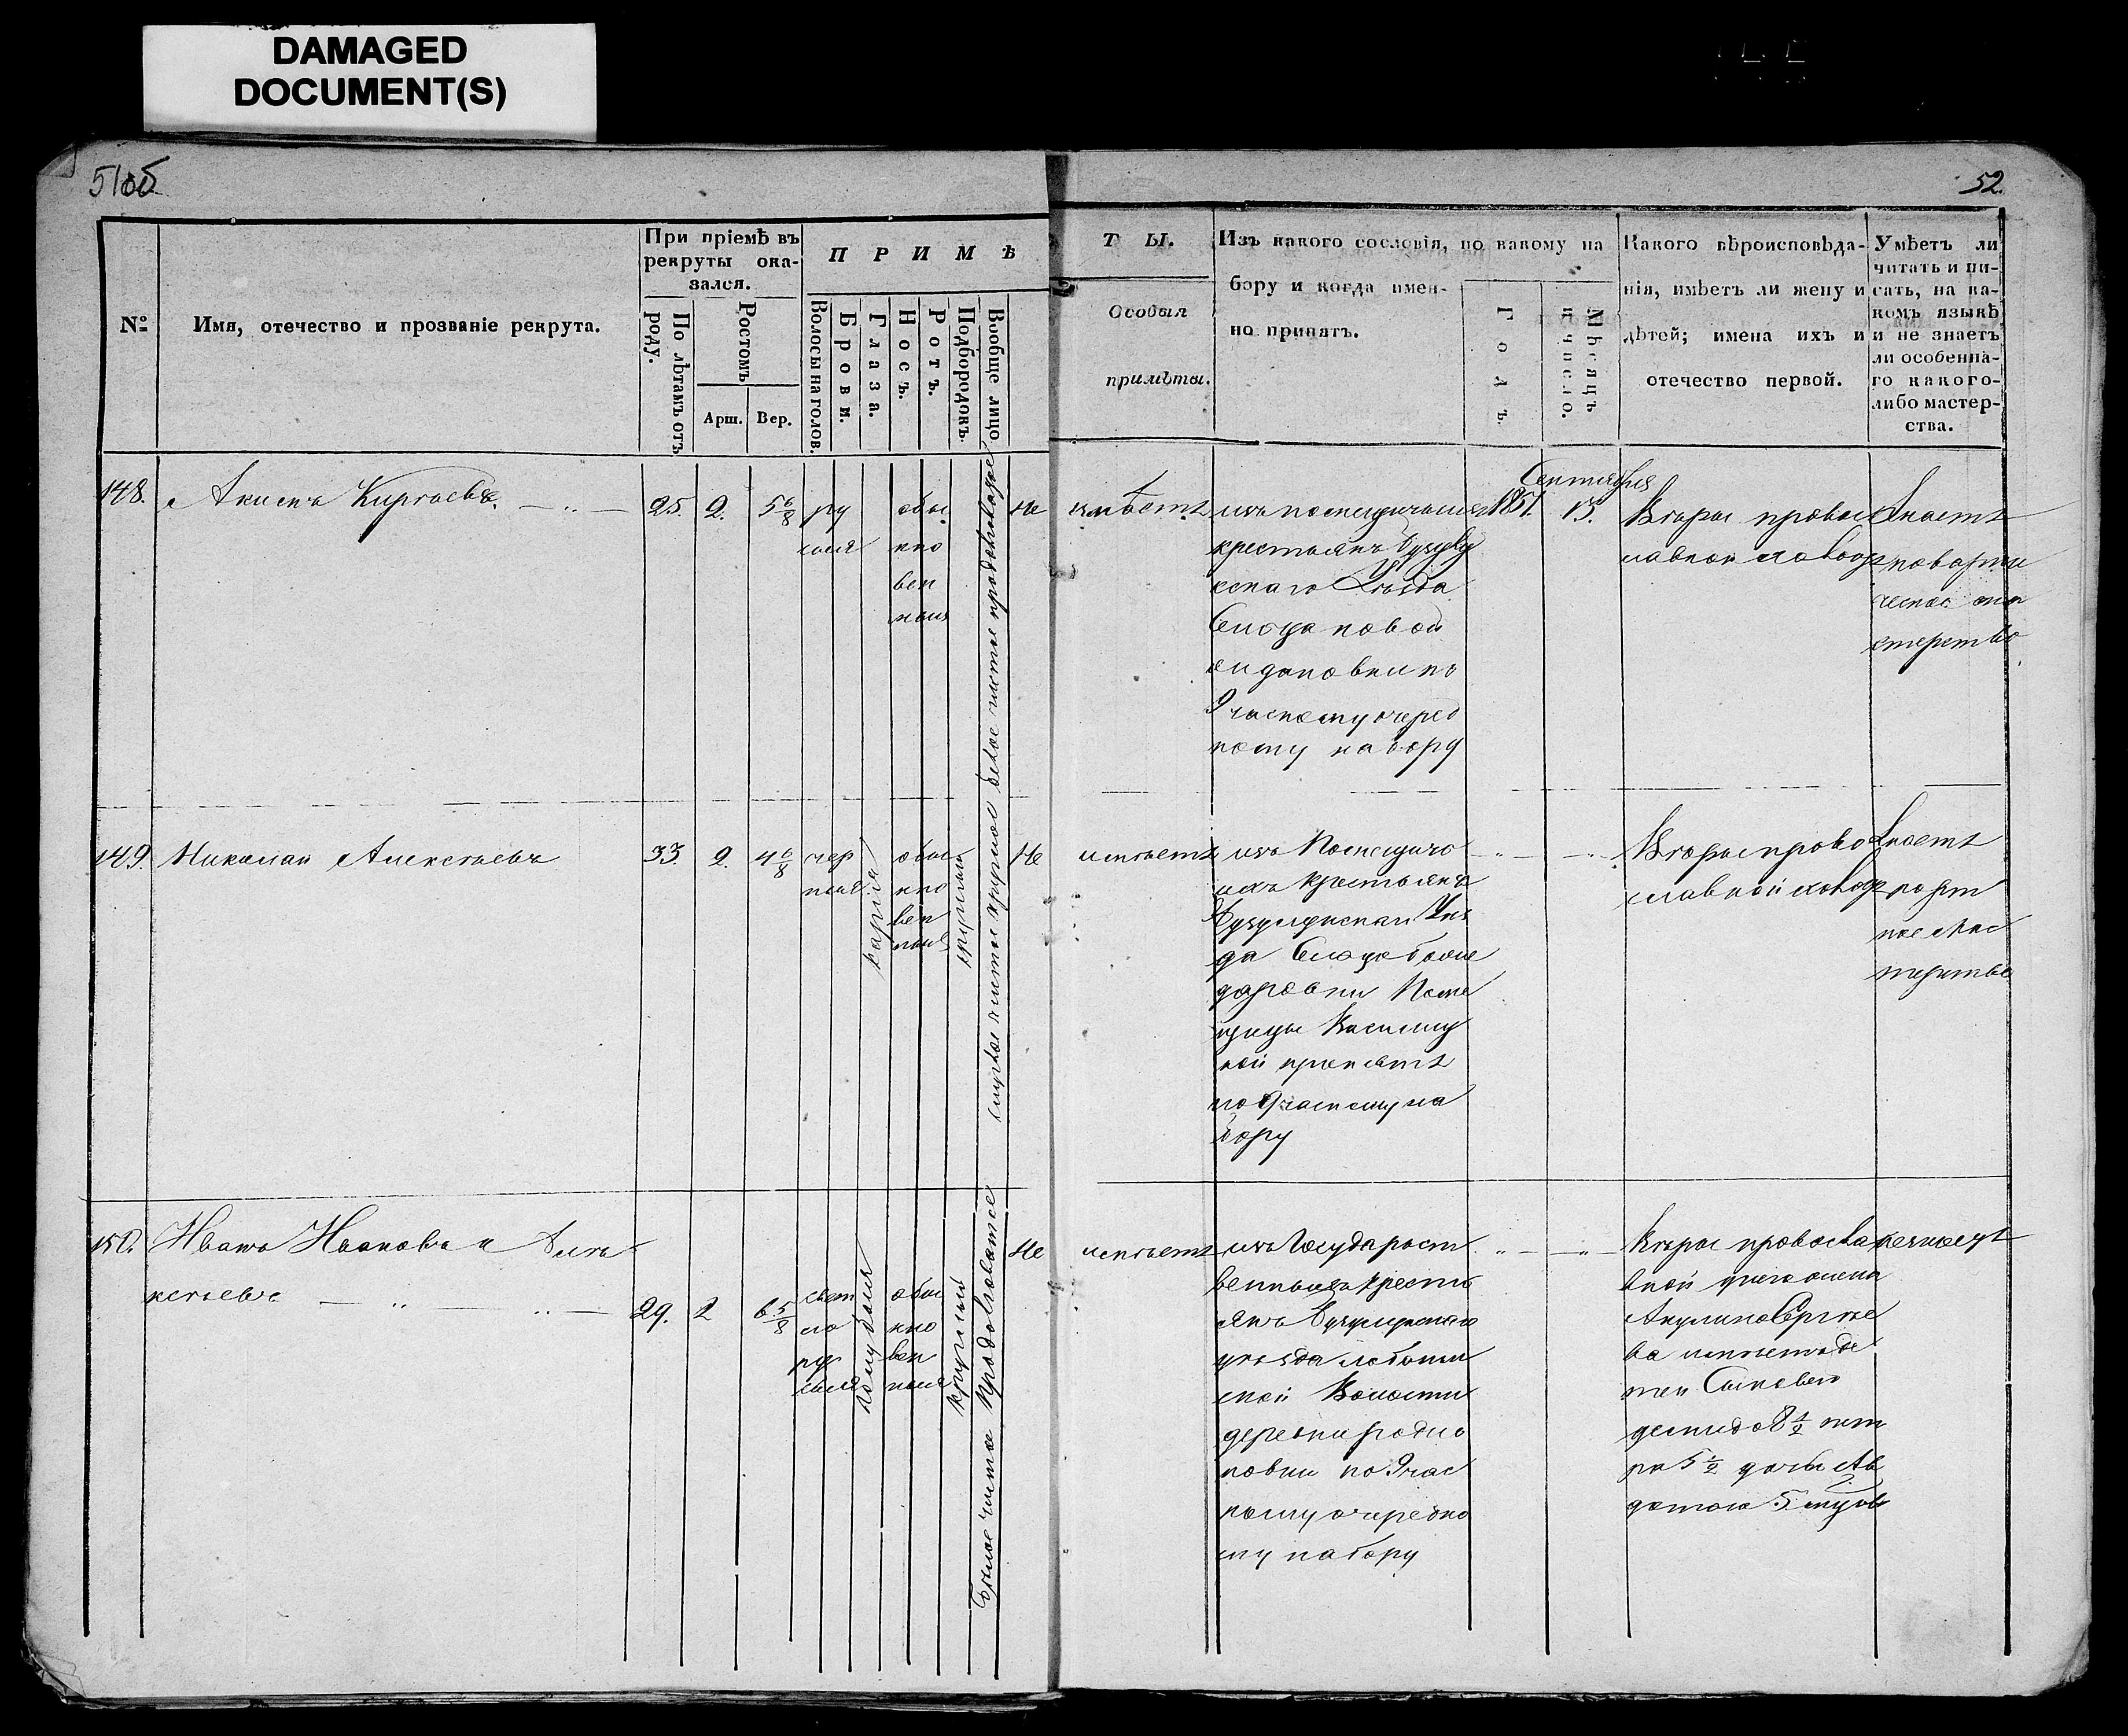 DAMAGED
DOCUMENT(S)
51об
52.
№
Имя, отечество и прозваніе рекрута.
При пріемѣ въ
рекруты ока-
зался.
По лѣтамъ отъ
роду.
Ростомъ
Арш.
Вер.
П Р И М Ѣ
Волосы на голов.
Брови.
Глаза.
Носъ.
Ротъ.
Подбородокъ.
Вообще лицо
Т Ы.
Особыя
примѣты.
Изъ какого сословія, по какому на
бору и когда имен-
но принятъ.
Годъ.
Мѣсяцъ
и число.
Какого вѣроисповѣда-
нія, имѣетъ ли жену и
дѣтей; имена ихъ и
отечество первой.
Умѣетъ ли
читать и пи-
сать, на ка-
комъ языкѣ
и не знаетъ
ли особенна-
го какого-
либо мастер-
ства.
148.
Акимъ Киргѣевъ.
25.
2.
5 6/8
ру
сыя
обы
кно
вен
ныя
круглое белое чистое продолговатое
Не
имѣетъ
изъ помещичьихъ
крестьянъ
скаго Уѣзда
Сельца новой
по
9 частному очеред
ному набору
1851.
Сентября
15.
Вѣры право
славной холостъ
Знаетъ
ма
стерство
149.
Николай Алексѣевъ
33.
2.
4 6/8
чер
ныя
карія
обы
кно
вен
ныя
круглый
смуглое чистое
Не
имѣетъ
изъ Помещичь
ихъ крестьянъ
Бузулукскаго Уѣз
да Сельца
Поме
щицы
ной принятъ
по 9 частному на
бору
Вѣры право
славной холостъ
Знаетъ
порт
ное мас
терство
150.
Иванъ Ивановъ и Але
ксѣевъ
29.
2
6 5/8
свет
ло
ру
сыя
голубыя
обы
кно
вен
ныя
круглый
белое чистое продолговатое
Не
имѣетъ
изъ Государст
венныхъ кресть
янъ Бузулукскаго
уѣзда
ской Волости
деревни родио
новки по 9 час
ному очередно
му набору
Вѣры правосла
вной
Акулина Сергѣе
ва имѣетъ де
тей Сыновей
демида 8 1/2 пет
ра 5 1/2 дочь Ав
дотью 5
незнаетъ